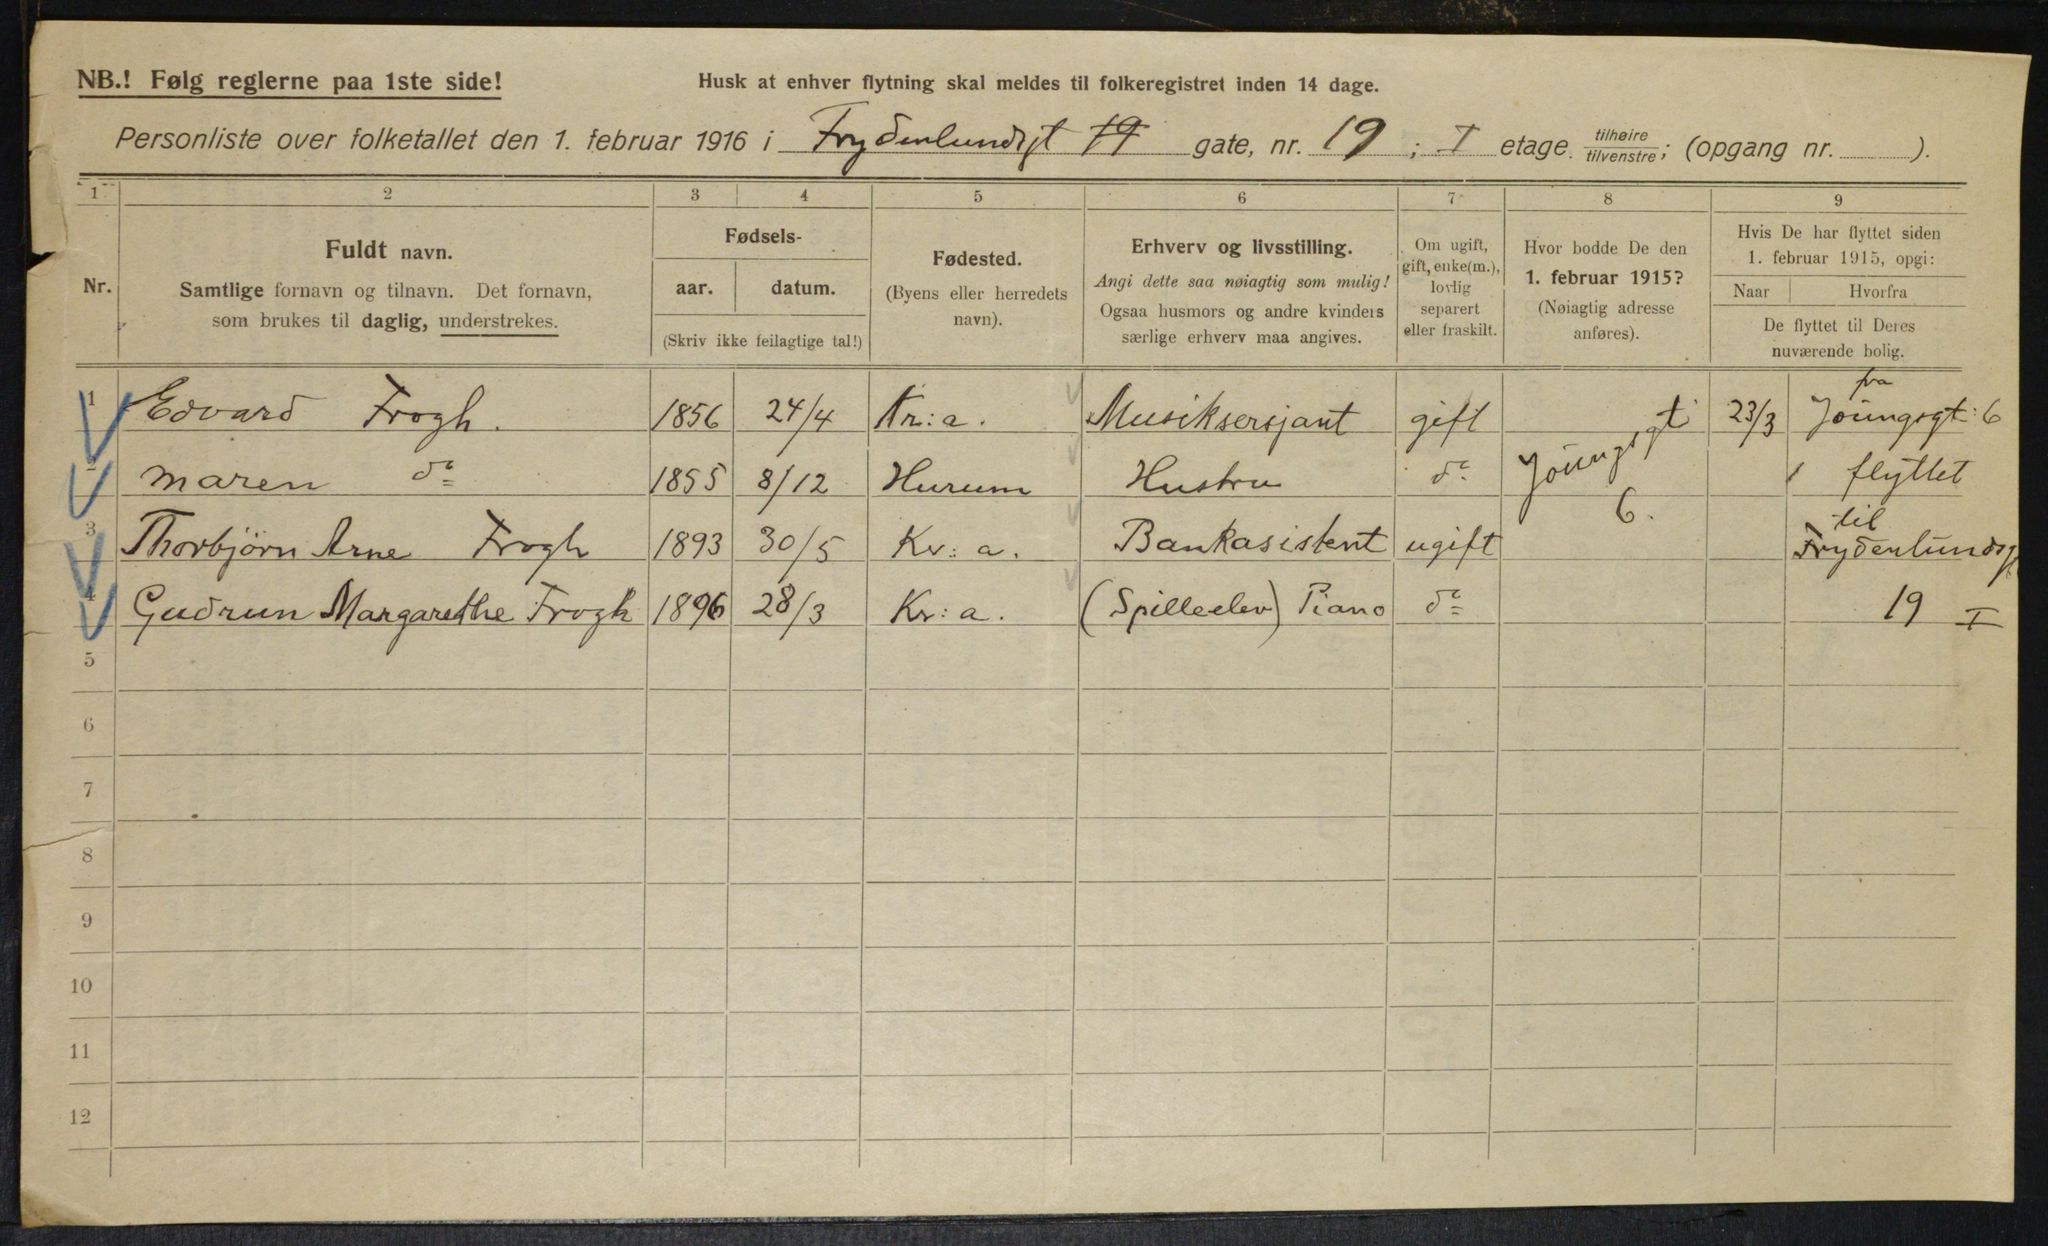 NB.! Følg reglerne paa 1ste side!
Husk at enhver flytning skal meldes til folkeregistret inden 14 dage.
Personliste over folketallet den 1. februar 1916 i Frydenlundsgt 19 gate, nr. 19 ; I etage. tilhøire/tilvenstre; (opgang nr. ).
1 2 3 4 5 6 7 8 9
Nr.
Fuldt navn.
Samtlige fornavn og tilnavn. Det fornavn,
som brukes til daglig, understrekes.
Fødsels-
aar. datum.
(Skriv ikke feilagtige tal!)
Fødested.
(Byens eller herredets
navn).
Erhverv og livsstilling.
Angi dette saa nøiagtig som mulig!
Ogsaa husmors og andre kvinders
særlige erhverv maa angives.
Om ugift,
gift, enke(m.),
lovlig
separert
eller fraskilt.
Hvor bodde De den
1. februar 1915?
(Nøiagtig adresse
anføres).
Hvis De har flyttet siden
1. februar 1915, opgi:
Naar Hvorfra
De flyttet til Deres
nuværende bolig.
1 Edvard Frogh. 1856 24/4 Kr:a. Musiksersjant gift Joungsgt 23/3 fra Joungsgt: 6
2 Maren do 1855 8/12 Hurum Hustru do 6. flyttet
3 Thorbjörn Arne Frogh 1893 30/5 Kr:a. Bankasistent ugift til Frydenlundsgt
4 Gudrun Margarethe Frogh 1896 28/3 Kr:a. (Spilleelev) Piano do 19 I
5
6
7
8
9
10
11
12